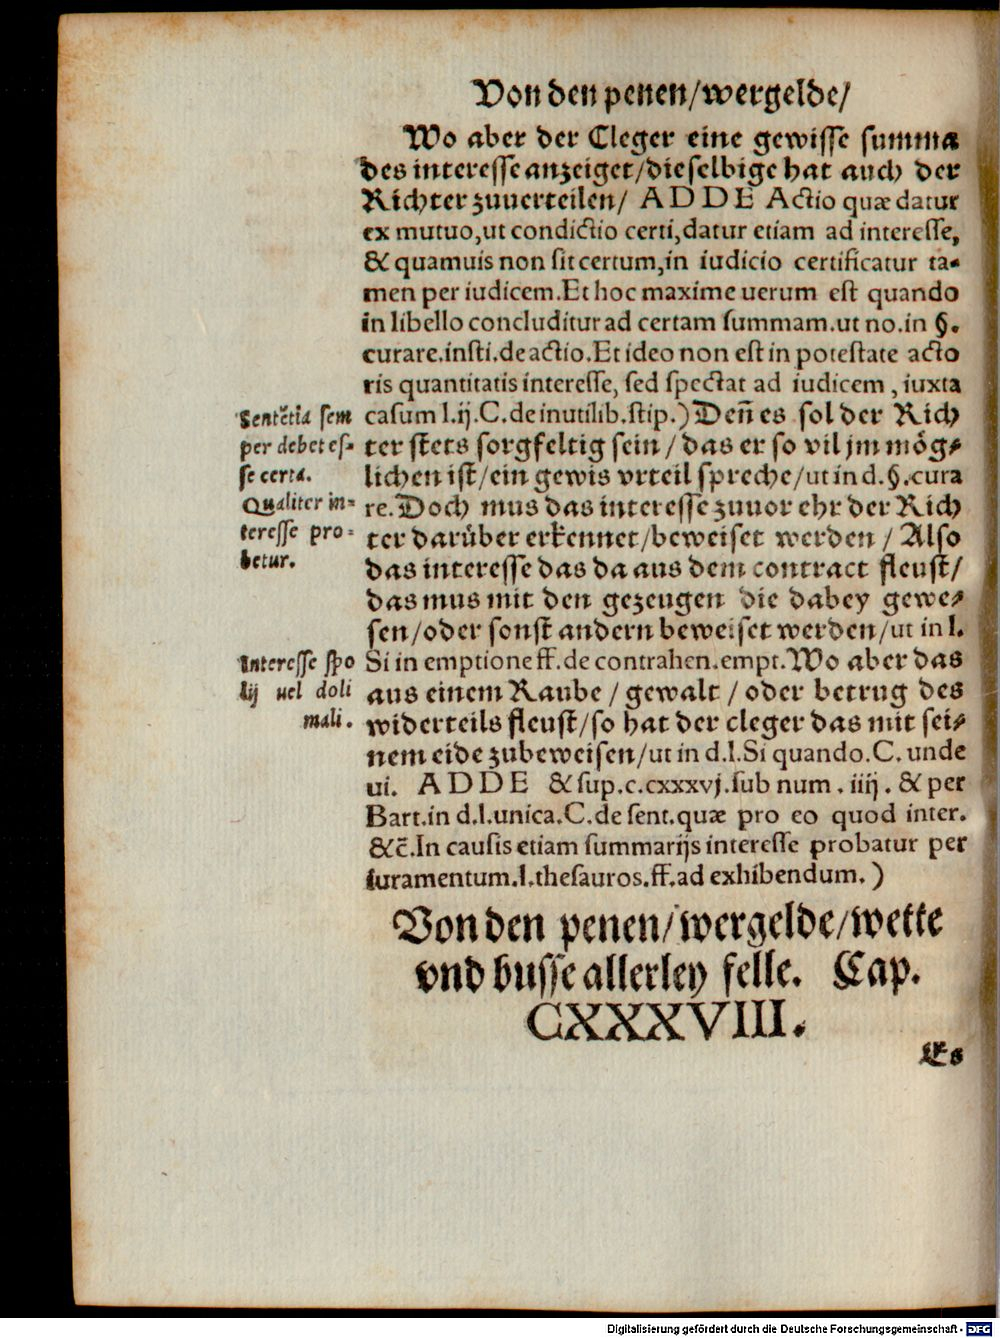 Von den penen/wergelde/
Wo aber der Cleger eine gewisse summa
des interesse anzeiget/dieselbige hat auch der
Richter zuuerteilen/ ADDE Actio quæ datur
ex mutuo,ut condictio certi,datur etiam ad interesse,
& quamuis non sit certum,in iudicio certificatur ta-
men per iudicem.Et hoc maxime uerum est quando
in libello concluditur ad certam summam.ut no.in §.
curare.insti.de actio.Et ideo non est in potestate acto
ris quantitatis interesse, sed spectat ad iudicem, iuxta
casum l.ij.C.de inutilib.stip.)Deñ es sol der Rich
ter stets sorgfeltig sein/das er so vil jm mög-
lichen ist/ein gewis vrteil spreche/ut in d.§.cura
re.Doch mus das interesse zuuor ehr der Rich
ter darüber erkennet/beweiset werden/Also
das interesse das da aus dem contract fleust/
das mus mit den gezeugen die dabey gewe-
sen/oder sonst andern beweiset werden/ut in l.
Si in emptione ff.de contrahen.empt.Wo aber das
aus einem Raube/gewalt/oder betrug des
widerteils fleust/so hat der cleger das mit sei-
nem eide zubeweisen/ut in d.l.Si quando.C.unde
ui. ADDE & sup.c.cxxxvj.sub num.iiij.& per
Bart.in d.l.unica.C.de sent.quæ pro eo quod inter.
&c̃.In causis etiam summarijs interesse probatur per
iuramentum.l.thesauros.ff.ad exhibendum.)
Sentẽtia sem
per debet es-
se certa.
Qualiter in-
teresse pro-
betur.
Interesse spo
lij uel doli
mali.
Von den penen/wergelde/wette
vnd busse allerley felle. Cap.
CXXXVIII.
Es
Digitalisierung gefördert durch die Deutsche Forschungsgemeinschaft - DFG